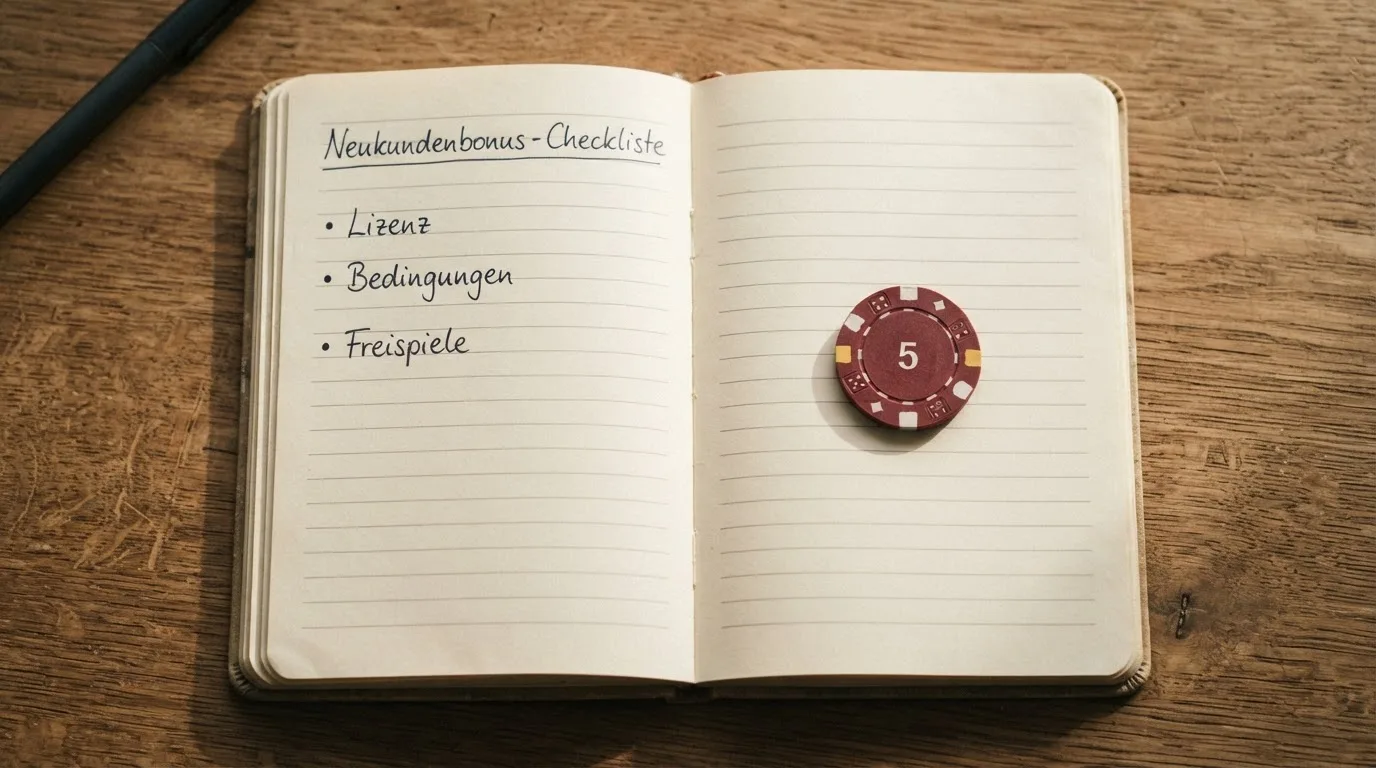 Neukundenbonus-Checkliste
• Lizenz
• Bedingungen
• Freispiele
5